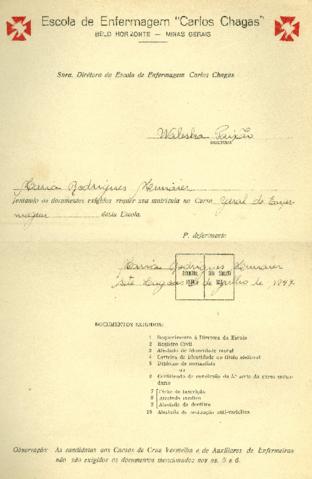 Escola de Enfermagem "Carlos Chagas"
BELO HORIZONTE — MINAS GERAIS
Snra. Diretora da Escola de Enfermagem Carlos Chagas
Waleska Paixão
DIRETORA
Maria Rodrigues
juntando os documentos exigidos requer sua matrícula no Curso Geral de Enfer-
magem desta Escola.
P. deferimento
Maria Rodrigues
de Julho de 1947.
DOCUMENTOS EXIGIDOS:
1 Requerimento à Diretora da Escola
2 Registro Civil
3 Atestado de idoneidade moral
4 Carteira de identidade ou título eleitoral
5 Diploma de normalista
ou
6 Certificado de conclusão da 5.ª serie do curso secun-
dario
7 Ficha de inscrição
8 Atestado médico
9 Atestado do dentista
10 Atestado de vacinação anti-variolica
Observação: As candidatas aos Cursos da Cruz Vermelha e de Auxiliares de Enfermeiras
não são exigidos os documentos mencionados nos ns. 5 e 6.